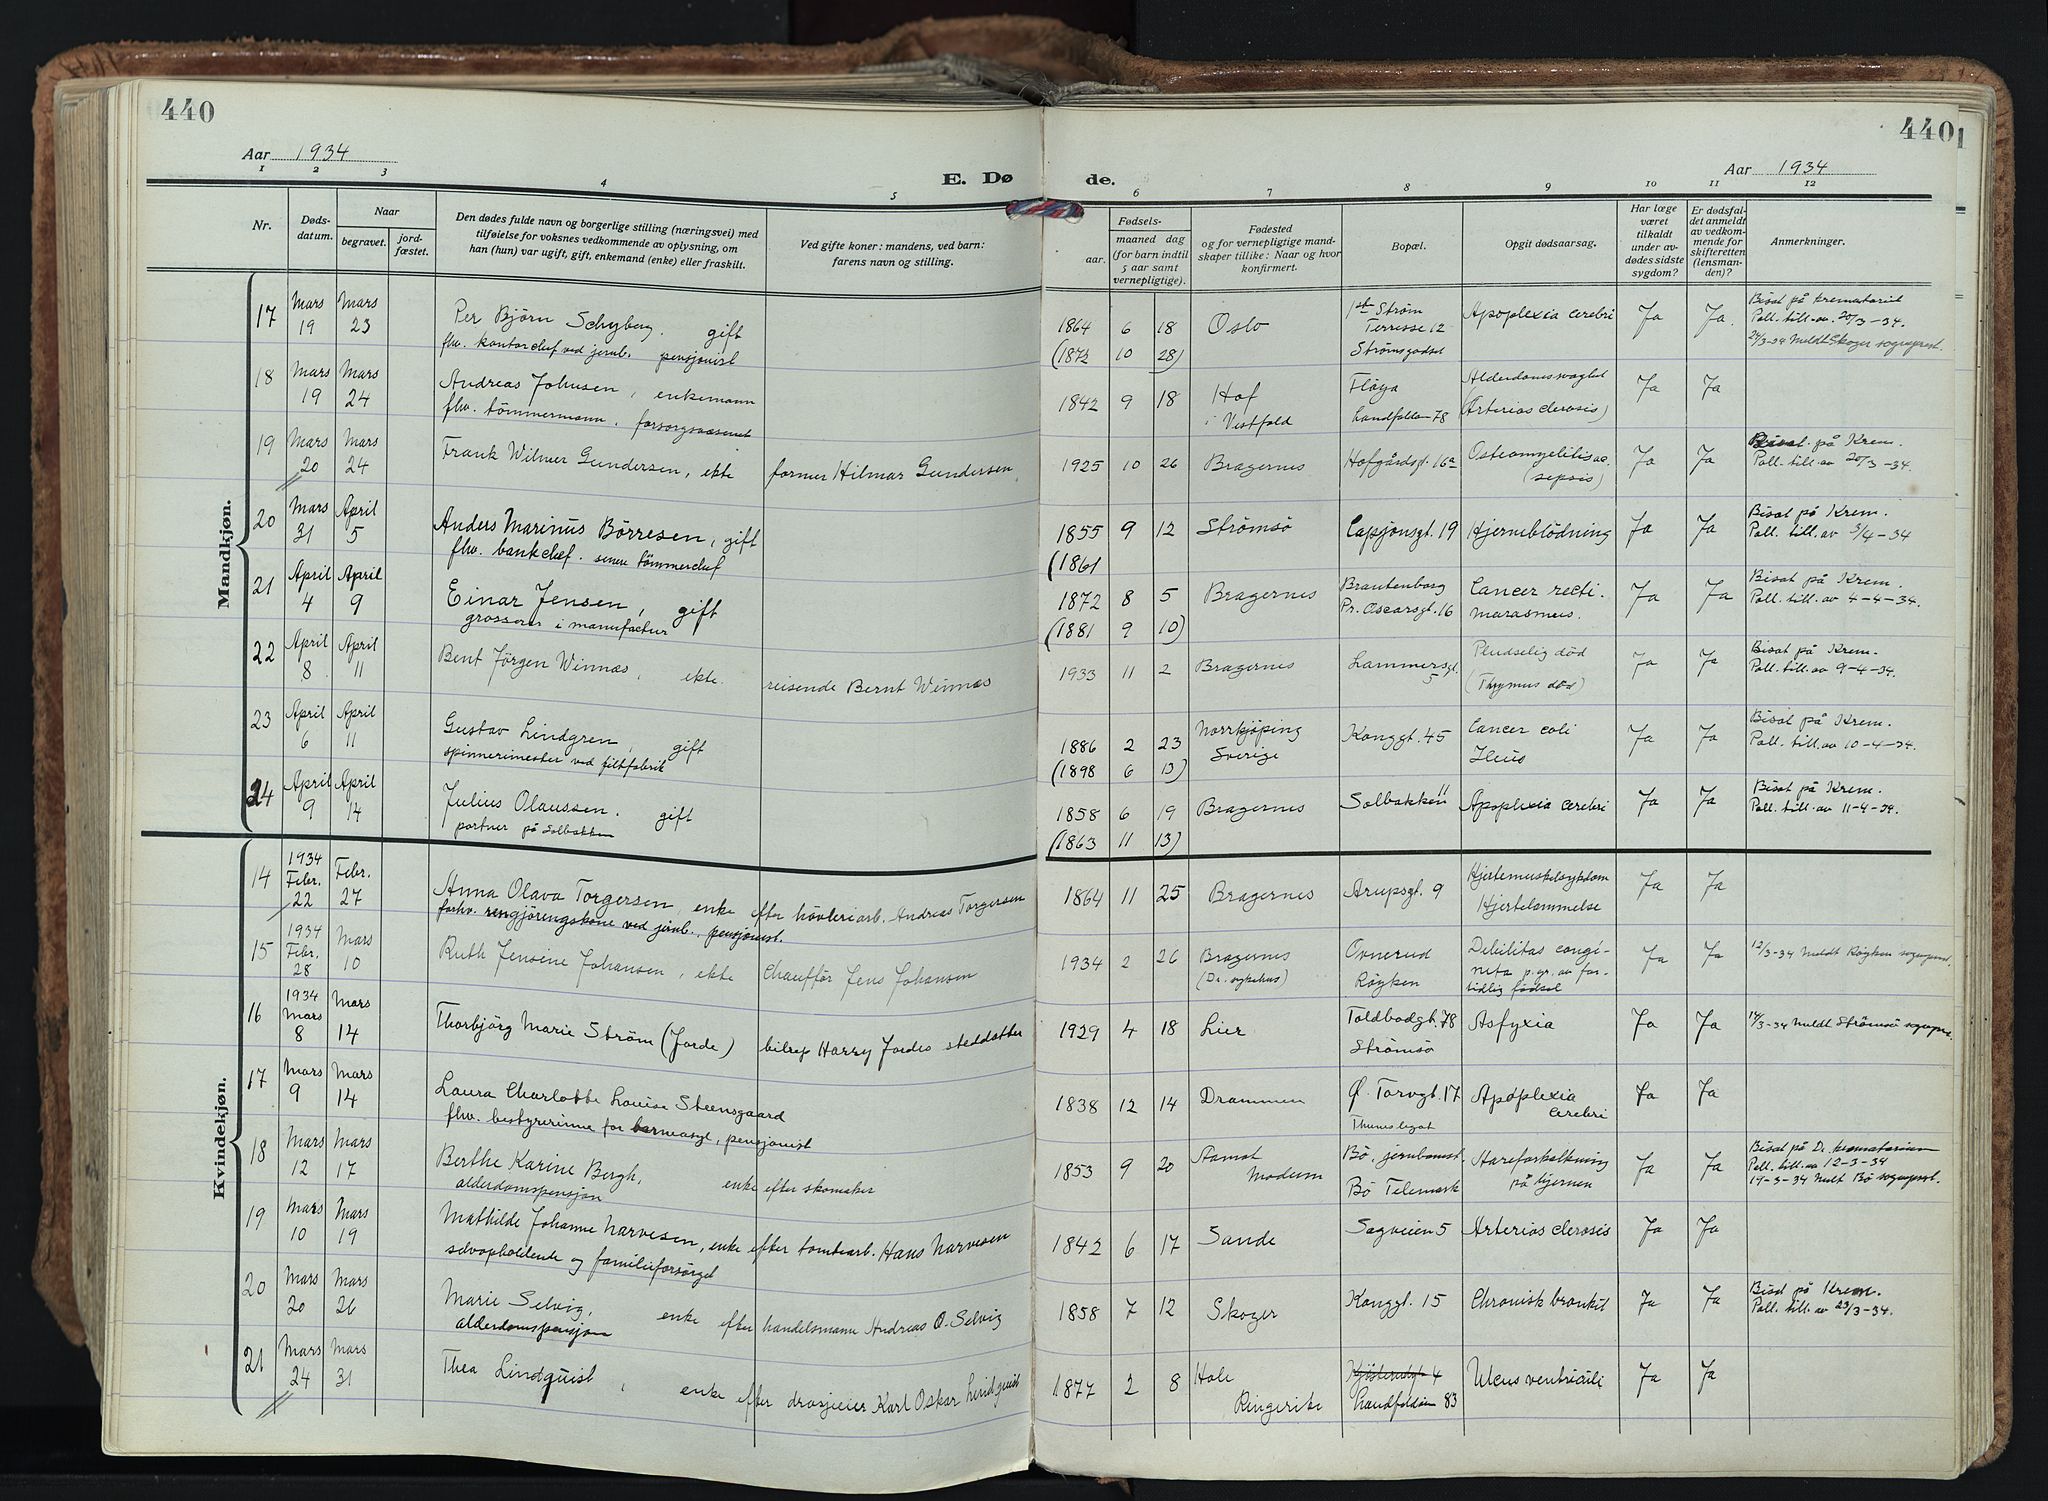 440
440
Aar 1934
Aar 1934
E. Dø de.
1 2 3 4 5 6 7 8 9 10 11 12
Nr.
Døds-
datum.
Naar
begravet.
jord-
fæstet.
Den dødes fulde navn og borgerlige stilling (næringsvei) med
tilføielse for voksnes vedkommende av oplysning, om
han (hun) var ugift, gift, enkemand (enke) eller fraskilt.
Ved gifte koner: mandens, ved barn:
farens navn og stilling.
Fødsels-
aar.
maaned dag
(for barn indtil
5 aar samt
vernepligtige).
Fødested
og for vernepligtige mand-
skaper tillike: Naar og hvor
konfirmert.
Bopæl.
Opgit dødsaarsag.
Har læge
været
tilkaldt
under av-
dødes sidste
sygdom?
Er dødsfal-
det anmeldt
av vedkom-
mende for
skifteretten
(lensman-
den)?
Anmerkninger.
Mandkjøn.
17 Mars Mars Per Björn Schyberg. gift 1864 6 18 Oslo Ström Apoplexia cerebri Ja Ja. Bisat på krematoriet
19 23 fhv. kontorchef ved jernb. pensjonist (1872 10 28) Terrasse 12 Poll. till. av. 20/3-34.
Strømsgodset 24/3-34 Meldt Skoger sogneprest.
18 Mars Mars Andreas Johnsen, enkemann 1842 9 18 Hof Fløya Alderdomssvaghet Ja Ja
19 24 fhv. tömmermann. forsorgsvæsenet i Vestfold Landfaldøen 78 (Arterios clerosis)
19 Mars Mars Frank Wilmer Gundersen, ekte former Hilmar Gundersen 1925 10 26 Bragernes Hofgårdsg. 16a Osteomyelitis ac. Ja Ja Bisat. på Krem.
20 24 (sepsis) Poll. till. av 20/3-34.
20 Mars April Anders Marinus Börresen, gift 1855 9 12 Strömsö Cappjonsgt. 19 Hjerneblödning Ja Ja Bisat på Krem.
31 5 fhv. bankchef. senere tömmerchef (1861 Poll. till. av 3/4-34
21 April April Einar Jensen, gift 1872 8 5 Bragernes Brantenborg Cancer recti. Ja Ja Bisat på Krem.
4 9 grosserer i manufactur (1881 9 10) Pr. Oscarsgt. 16 marasmus. Poll. till. av 4-4-34.
22 April April Bent Jörgen Winnæs, ekte. reisende Bernt Winnæs 1933 11 2 Bragernes Lammersgt. 5 Pludselig död Ja Ja Bisat på Krem.
8 11 (Thymus död) Poll. till. av 9-4-34.
23 April April Gustav Lindgren, gift 1886 2 23 Norrkjöping Konggt. 45 Cancer coli Ja Ja Bisat på Krem.
6 11 spinnerimester ved filtfabrik (1898 6 13) Sverige Ileus Poll. till. av 10-4-34.
24 April April Julius Olaussen. gift 1858 6 19 Bragernes Solbakken 11 Apoplexia cerebri Ja Ja Bisat på Krem.
9 14 portner på Solbakken (1863 11 13) Poll. till. av 11-4-34.
Kvindekjøn.
14 1934 Febr. 22 Febr. 27 Anna Olava Torgersen, enke efter hövleriarb. Andreas Torgersen 1864 11 25 Bragernes Arupsgt. 9 Hjertemuskelsykdom Ja Ja
forhv. rengjöringskone ved jernb., pensjonist. Hjertelammelse
15 1934 Febr. 28 Mars 10 Ruth Jensine Johansen, ekte Chauffør Jens Johansen 1934 2 26 Bragernes Ovnerud Debilitas conge- Ja Ja 12/3-34 Meldt Röyken sognprst.
(Dr. sykehus) Röyken nita p. gr. av for-
tidlig födsel
16 1934 Mars 8 Mars 14 Thorbjörg Marie Ström (Jorde) bilrep Harry Jordes steddatter 1929 4 18 Lier Toldbodgt. 78 Asfyxia Ja Ja 14/3-34 Meldt Strömsö sogneprst.
Strömsö
17 Mars Mars Laura Charlotte Louise Steensgaard 1838 12 14 Drammen Ø. Torvgt. 17 Apoplexia Ja Ja
9 14 fhv. bestyrerinne for barneasyl, pensjonist Thunes legat cerebri
18 Mars Mars Berthe Karine Bergh, enke efter skomaker 1853 9 20 Aamot Bö, jernbanest. Åreforkalkning Ja Ja Bisat på Dr. krematorium
12 17 alderdomspensjon Modum Bö Telemark på hjernen Poll. till. av 12-3-34
19-3-34 Meldt Bö sogneprst.
19 Mars Mars Mathilde Johanne Narvesen, enke efter tomtearb. Hans Narvesen 1842 6 17 Sande Sagveien 5 Arterios clerosis Ja Ja
10 19 selvopholdende og familieforsörget
20 Mars Mars Marie Selvig, enke efter handelsmann Andreas O. Selvig 1858 7 12 Skoger Konggt. 15 Chronisk bronkit Ja Ja Bisat på Krem.
20 26 alderdomspensjon Poll. till. av 23/3-34.
21 Mars Mars Thea Lindquist, enke efter drosjeeier Karl Oskar Lindquist 1877 2 8 Hole 4 Ulcus ventriculi Ja Ja
24 31 Ringerike Landfaldøen 83